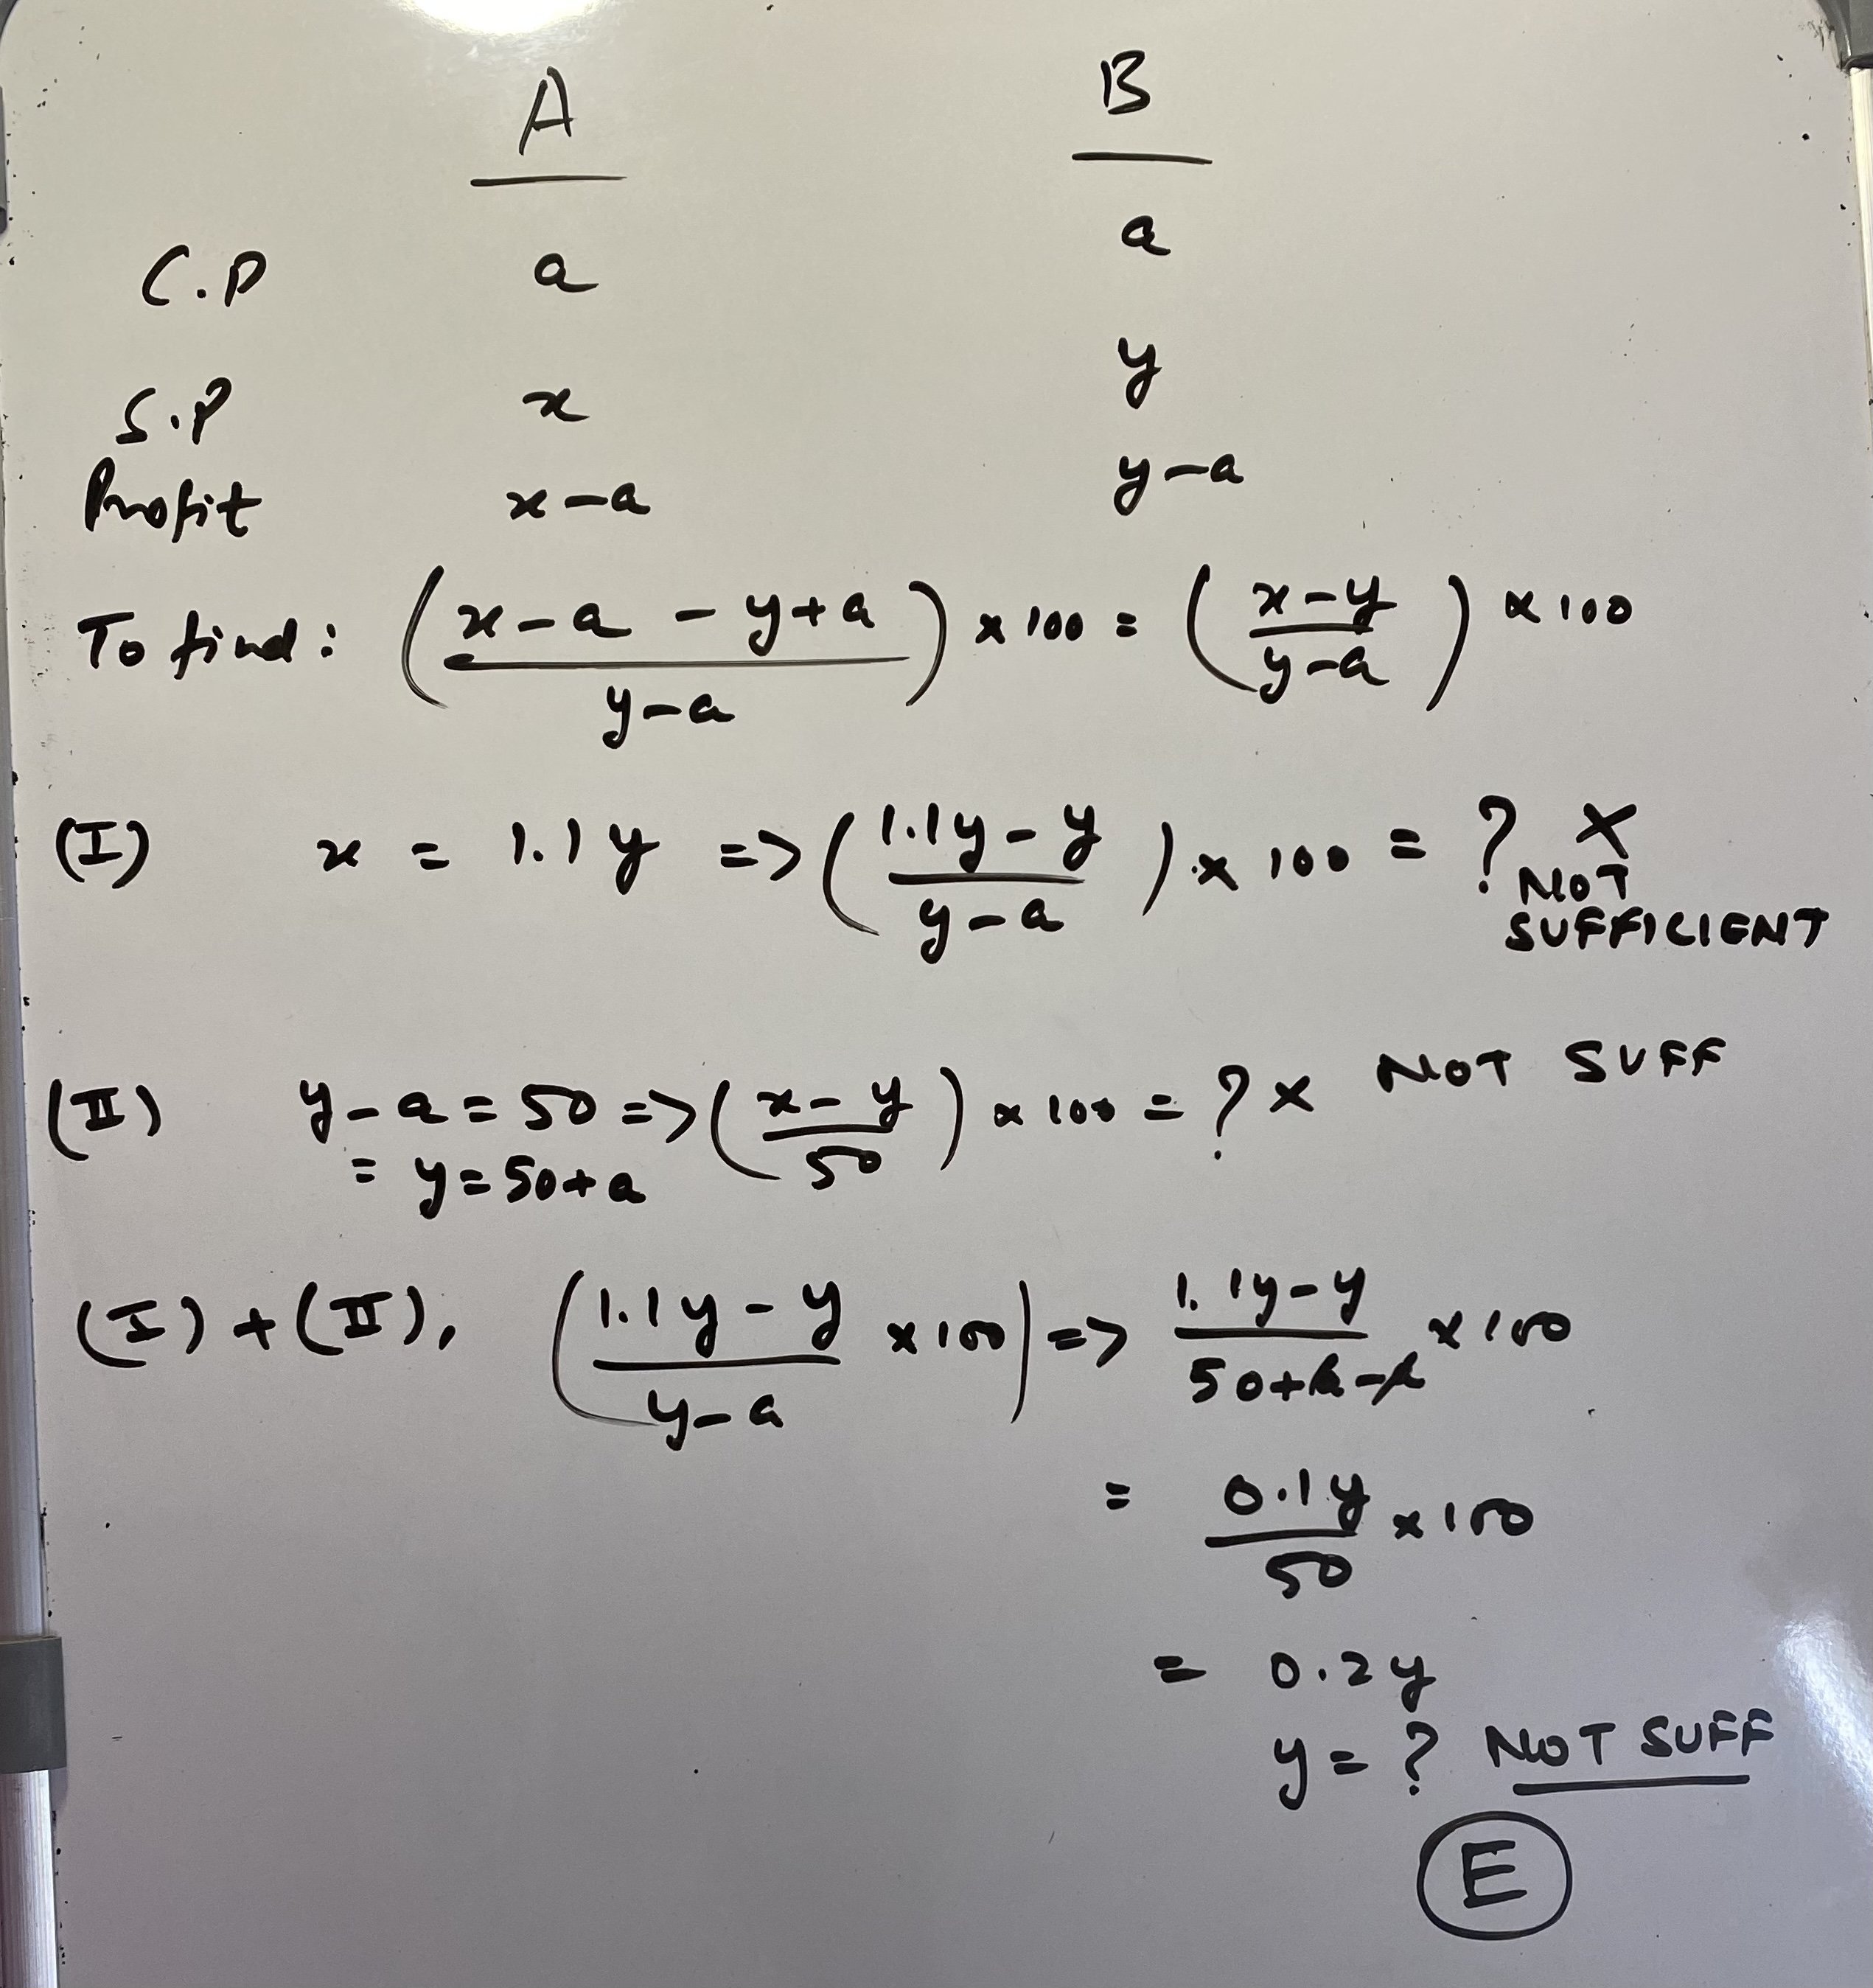 A B
C.P a a
S.P x y
Profit x-a y-a
To find: ((x-a - y+a)/(y-a)) x 100 = ((x-y)/(y-a)) x 100
(I) x = 1.1y => ((1.1y-y)/(y-a)) x 100 = ? X
NOT
SUFFICIENT
(II) y-a = 50 => ((x-y)/50) x 100 = ? x NOT SUFF
= y = 50+a
(I) + (II), ((1.1y-y)/(y-a) x100) => (1.1y-y)/(50+a-a) x100
= 0.1y/50 x100
= 0.2y
y = ? NOT SUFF
E